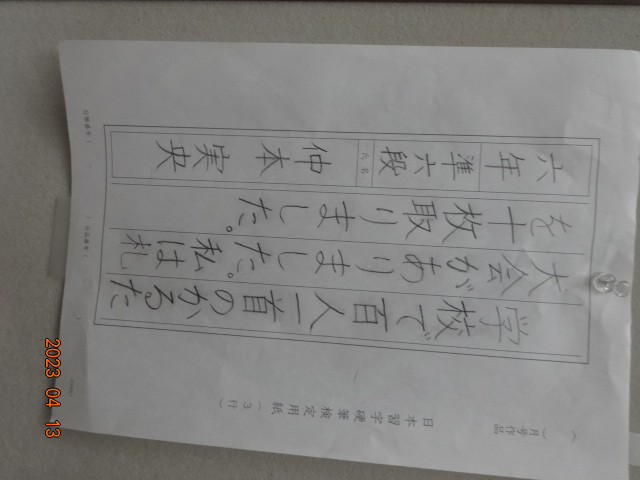 （　月号作品
日本習字硬筆検定用紙（３行）
学校で百人一首のかるた
大会がありました。私は札
を十枚取りました。
六年 準六段 氏名 仲本実央
2023 04 13